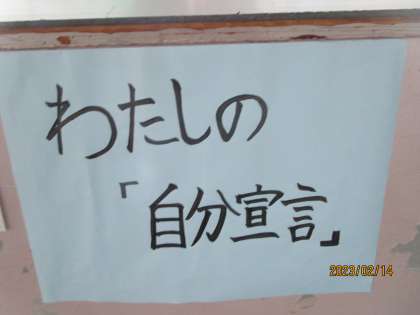 わたしの
「自分宣言」
2023/02/14